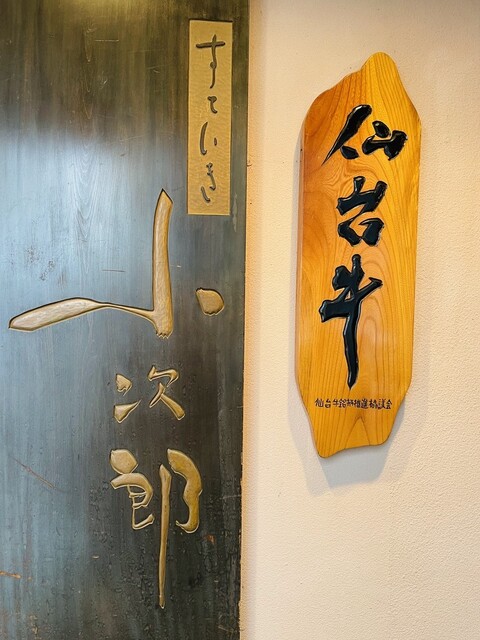 すていき
小次郎
仙台牛
仙台牛銘柄推進協議会